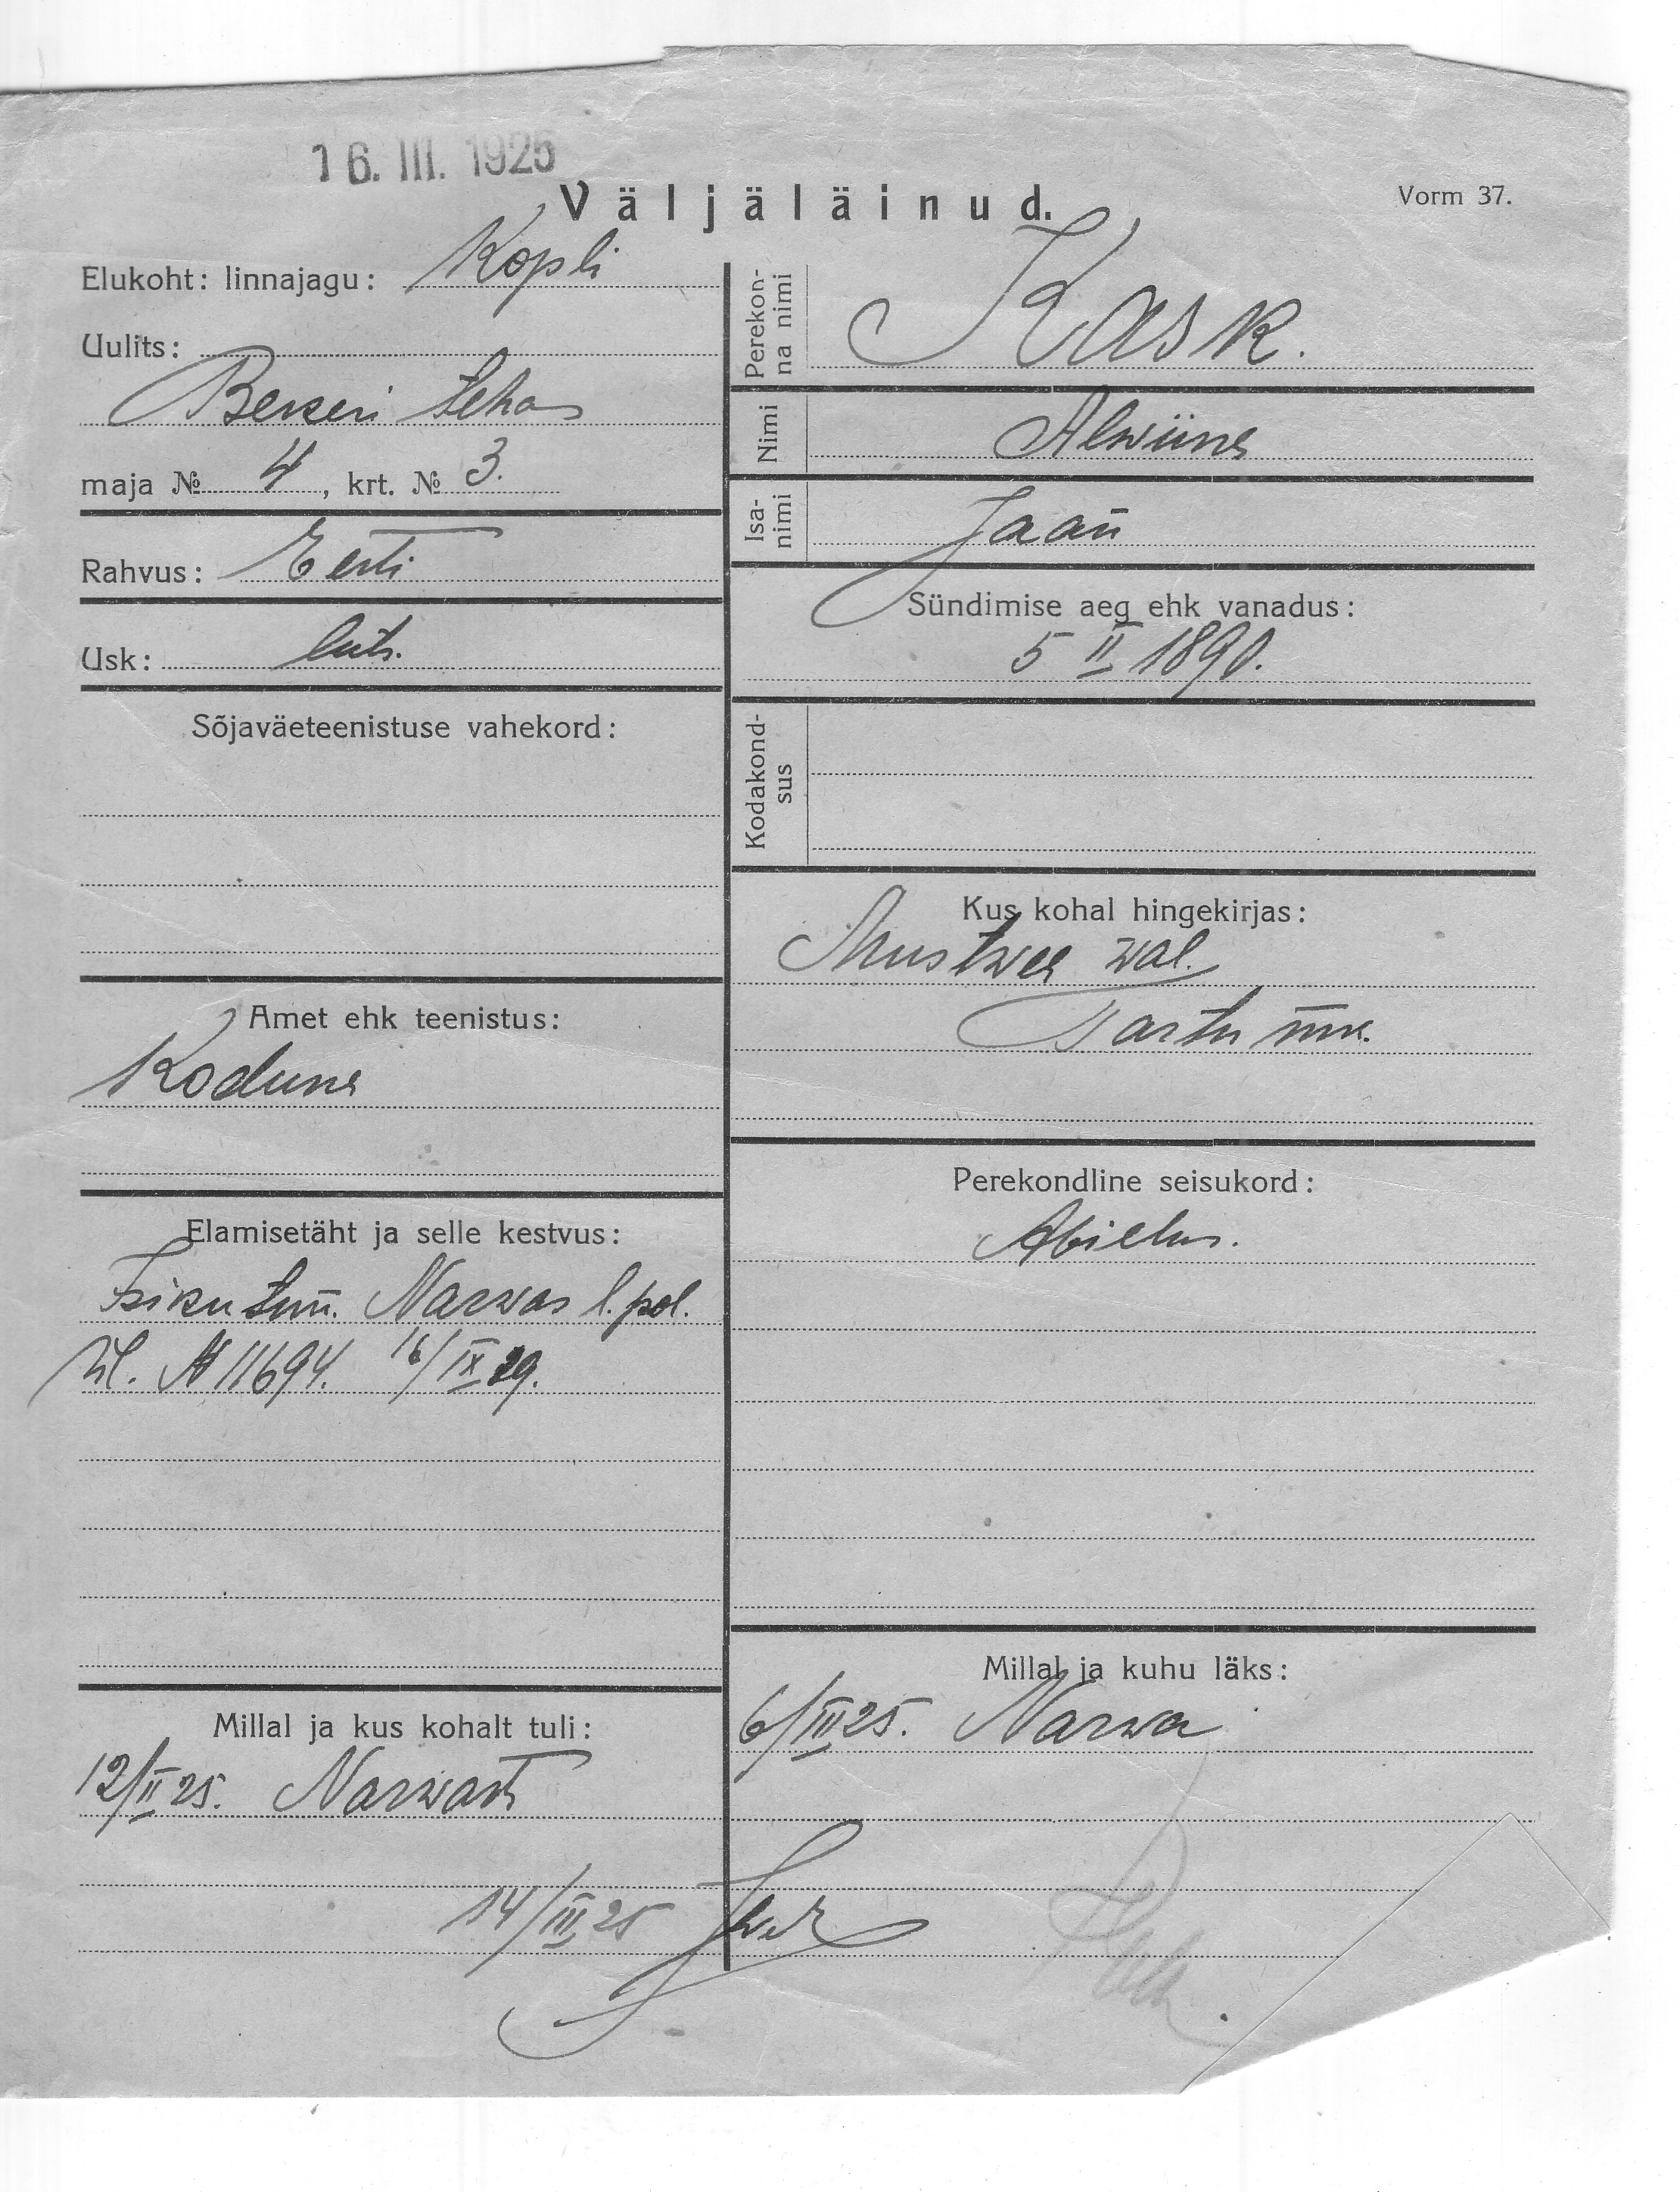 16. III. 1925
Väljäläinud.
Vorm 37.
Elukoht: linnajagu: Kopli
Uulits:
Bekeri tehas
maja № 4, krt. № 3.
Rahvus: Eesti
Usk: luts.
Sõjaväeteenistuse vahekord:
Amet ehk teenistus:
Kodune
Elamisetäht ja selle kestvus:
Isiku tunn. Narwas l. pol.
ül. № 11694. 16/IX
Millal ja kus kohalt tuli:
12/II 25. Narwast
14/III 25
Perekon-
na nimi
Kask.
Nimi Alwiine
Isa-
nimi
Jaan
Sündimise aeg ehk vanadus:
5 II 1890.
Kodakond-
sus
Kus kohal hingekirjas:
Mustwee wal.
Tartu mk.
Perekondline seisukord:
Abielus.
Millal ja kuhu läks:
6/III 25. Narwa